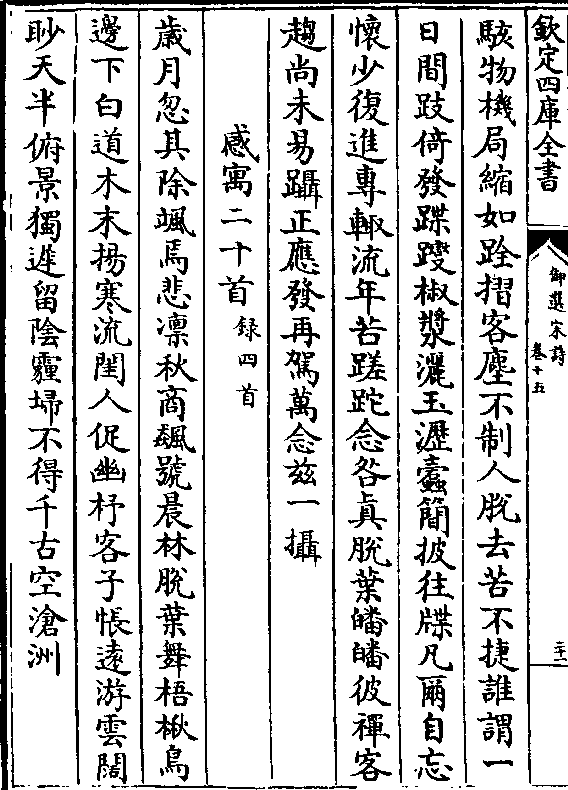 欽定四庫全書
御選宋詩
卷十五
二十一
駭物機局縮如跧摺客塵不制人脫去苦不捷誰謂一
日間跂倚發蹀躞椒漿灑玉瀝蠹簡披往牒凡爾自忘
懷少復進專輙流年苦蹉跎念各真脫葉皤皤彼褌客
趨尚未易躡正應發再駕萬念兹一攝
感寓二十首錄四首
歲月忽其除颯焉悲凛秋商飆號晨林脫葉舞梧楸鳥
邊下白道木末揚寒流閨人促幽杼客子悵遠游雲闊
眇天半俯景獨遲留陰霾埽不得千古空滄洲